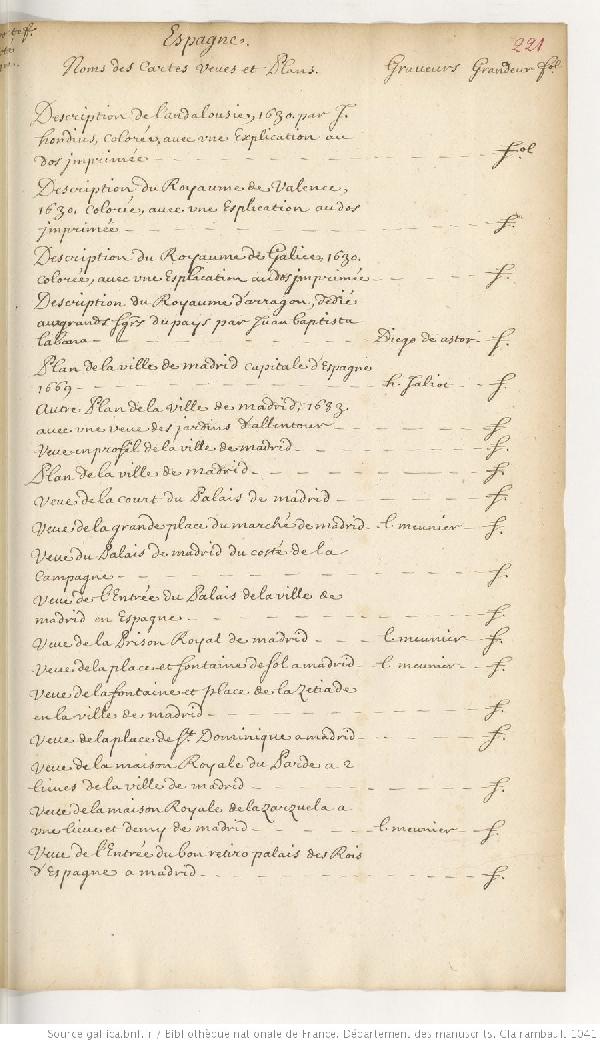 Espagne.
221
Noms des Cartes Veues et Plans. Graveurs Grandeur fol.
Description de l'andalousie, 1630. par J.
hondius, colorée, avec vne Explication au
dos jmprimée - - - fol
Description du Royaume de Valence,
1630. colorée, avec vne Esplication au dos
jmprimée - - - f.
Description du Royaume de Galice, 1630.
colorée, avec vne Esplication au dos jmprimée - - - f.
Description du Royaume d'arragon, Dedié
aux grands sgrs du pays par Juan baptista
labana - - - Diego de astor - f.
Plan de la ville de madrid capitale d'Espagne
1669 - - - h. Jaliot - f.
Autre Plan de la ville de madrid, 1683.
avec vne veue des jardins d'allentour - - - f.
Veue en profil de la ville de madrid - - - f.
Plan de la ville de madrid - - - f.
Veue de la court du Palais de madrid - - - f.
Veue de la grande place du marché de madrid - l. meunier - f.
Veue du Palais de madrid du costé de la
Campagne - - - f.
Veue de l'Entrée du Palais de la ville de
madrid en Espagne - - - f.
Veue de la Prison Royal de madrid - - - l. meunier - f.
Veue de la place et fontaine de sol a madrid - l. meunier - f.
Veue de la fontaine et place de la Zeuade
en la ville de madrid - - - f.
Veue de la place de St. Dominique a madrid - - - f.
Veue de la maison Royale du Parde a 2
lieues de la ville de madrid - - - f.
Veue de la maison Royale de la zarzuela a
vne lieue et demy de madrid - - - l. meunier - f.
Veue de l'Entrée du bon retiro palais des Rois
d'Espagne a madrid - - - f.
Source gallica.bnf.fr / Bibliothèque nationale de France. Département des manuscrits. Clairambault 1041